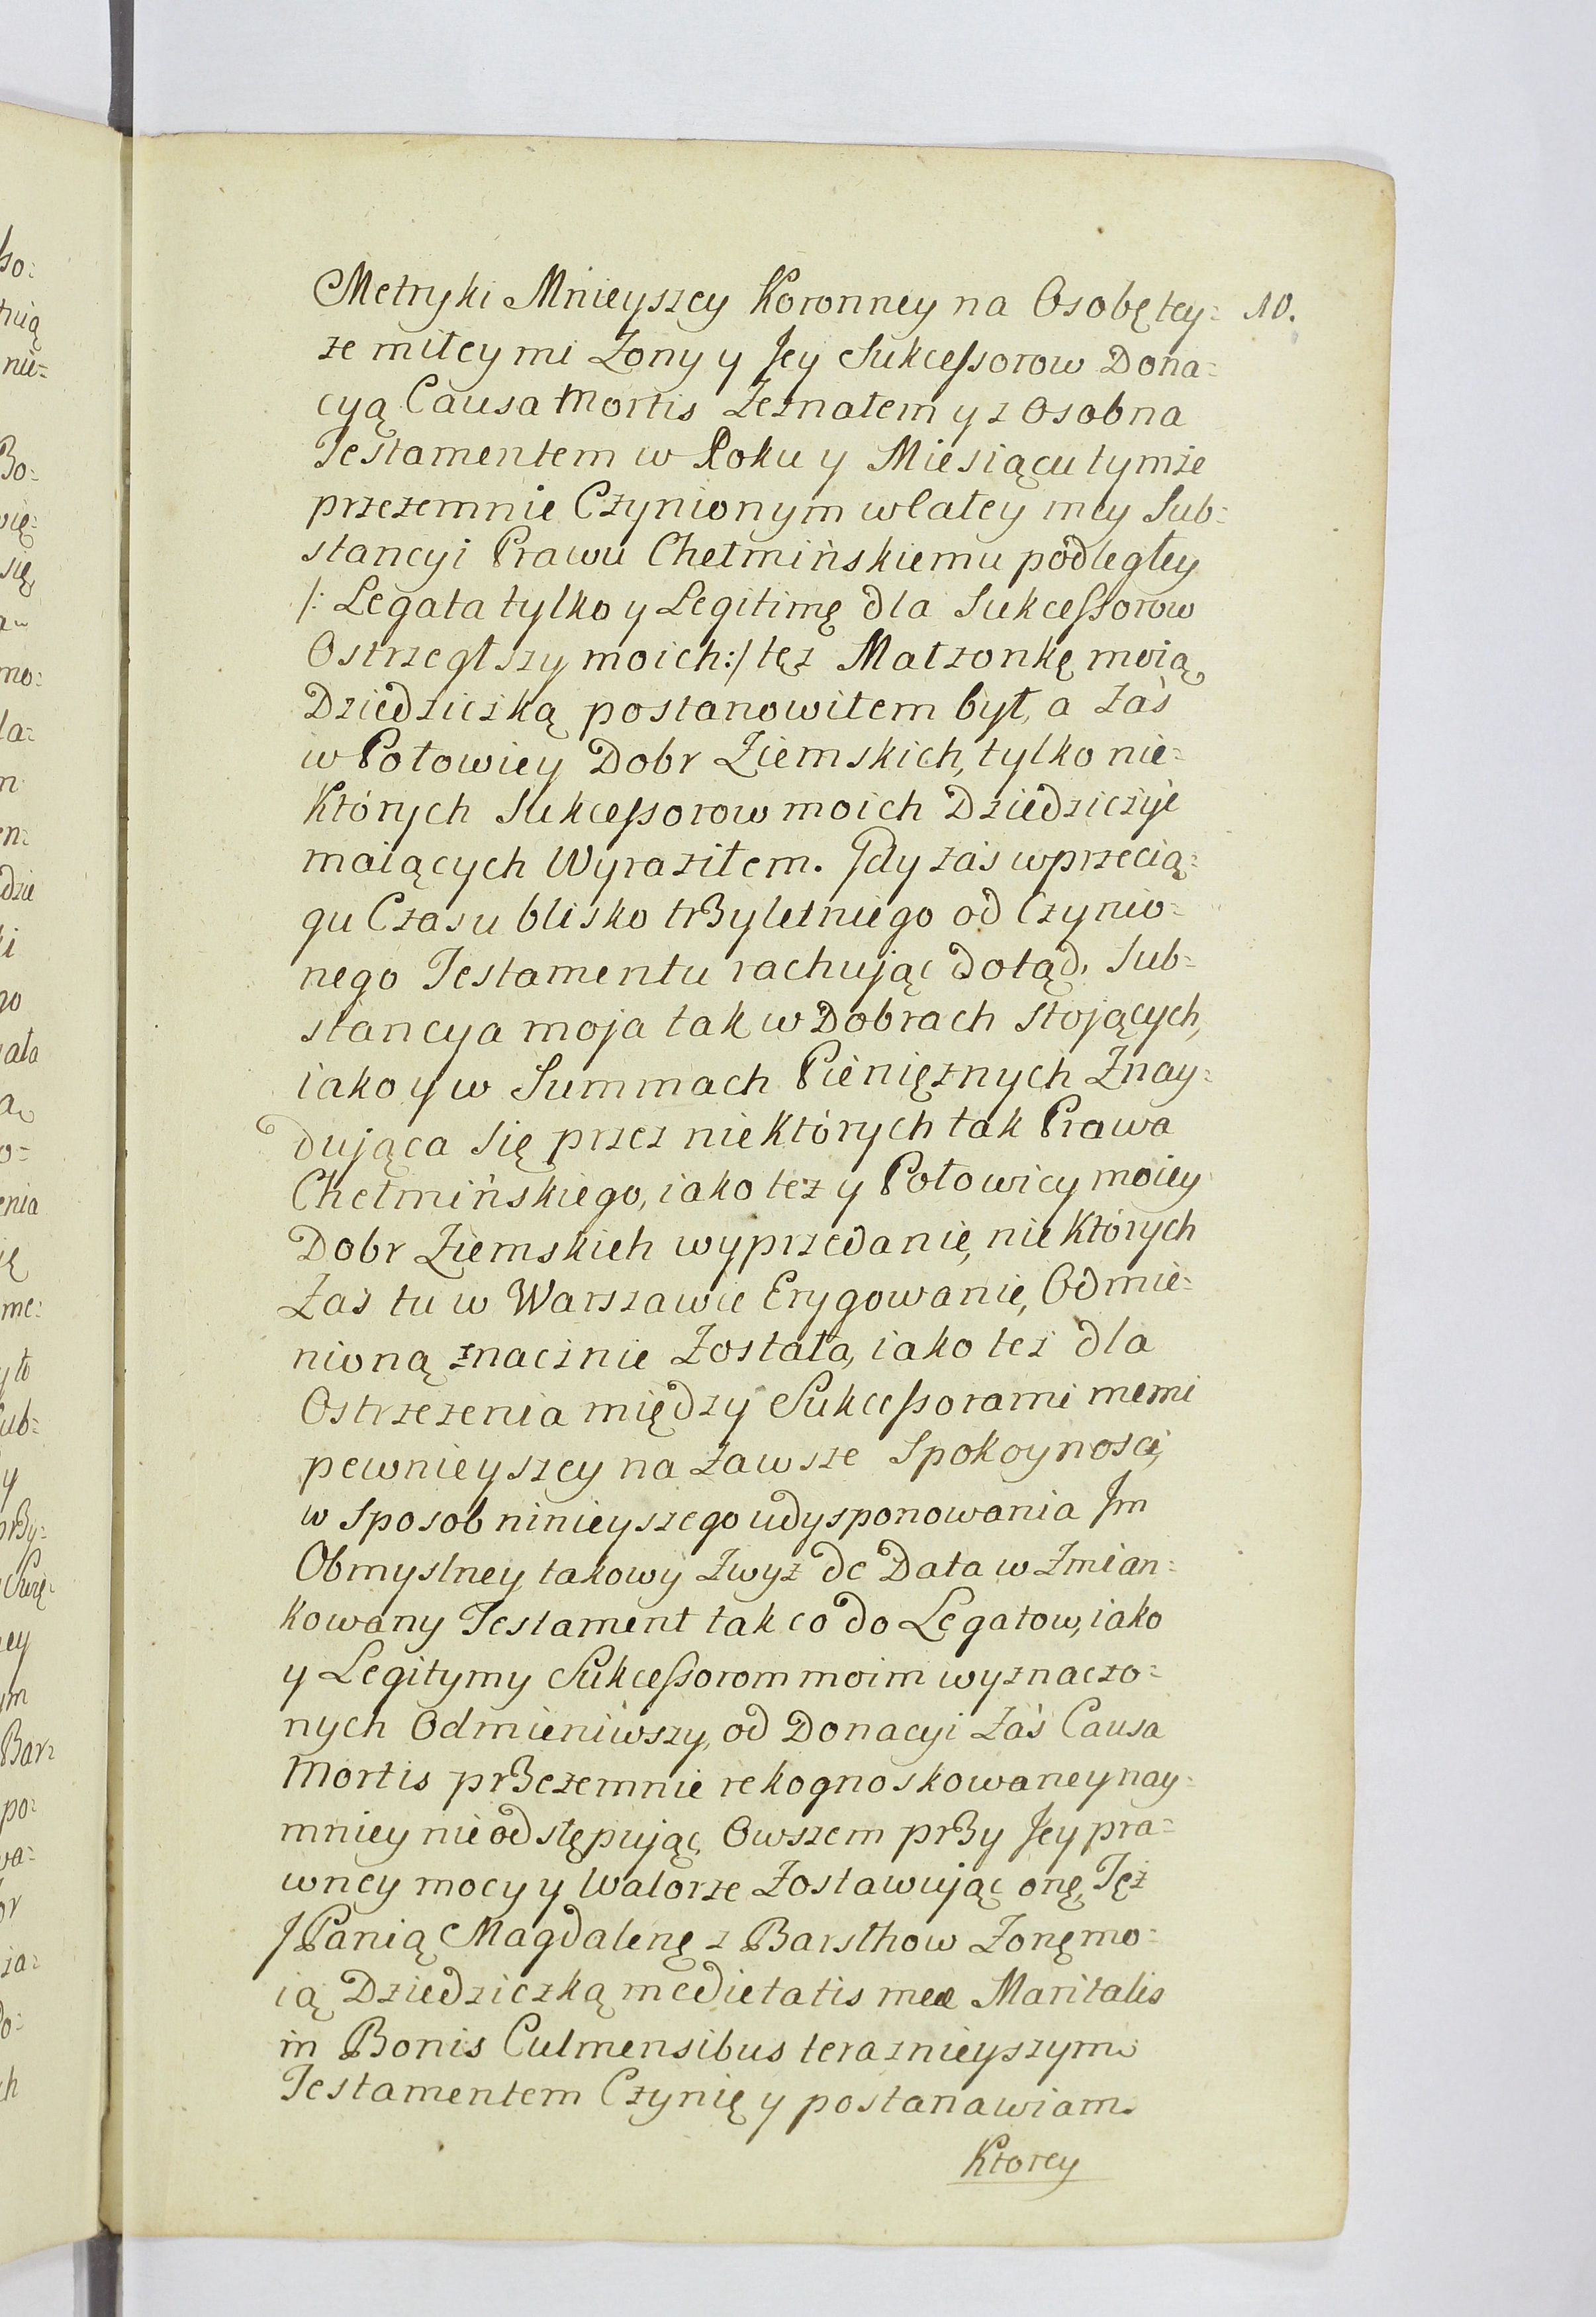 Metryki Mnieyszey Koronney na Osobę tey= 10.
że miłey mi Żony y Jey Sukcessorow Dona=
cyą Causa Mortis Zeznałem y z Osobna
Testamentem w Roku y Miesiącu tymże
przezemnie Czynionym w Całey mey Sub=
stancyi Prawu Chełmińskiemu podległey
/: Legata tylko y Legitimę dla Sukcessorow
Ostrzegłszy moich :/ tęż Małżonkę moią
Dziedziczką postanowiłem był, a zaś
w Połowicy Dobr Ziemskich, tylko nie=
Których Sukcessorow moich Dziedziczyć
maiących Wyraziłem. Gdy zaś w przecią=
gu Czasu blisko trzyletniego od Czynio=
nego Testamentu rachując dotąd, Sub=
stancya moja tak w Dobrach Stojących,
iako y w Summach Pieniężnych Znay=
dująca Się przez nieKtórych tak Prawa
Chełmińskiego, iako też y Połowicy moiey
Dobr Ziemskich wyprzedanie, nieKtórych
Zaś tu w Warszawie Erygowanie, Odmie=
nioną znacznie Została, iako też dla
Ostrzeżenia między Sukcessorami memi
pewnieyszey na Zawsze Spokoynosci,
w Sposob ninieyszego udysponowania Jm
Obmyslney, takowy Zwyż de Data w Zmian=
kowany Testament tak co do Legatow, iako
y Legitymy Sukcessorom moim wyznaczo=
nych Odmieniwszy, od Donacyi Zaś Causa
Mortis przezemnie rekognoskowaney nay=
mniey nie odstępując, Owszem przy Jey pra=
wney mocy y Walorze Zostawując onę, Tęż
JPanią Magdalenę z Barsthow Żonę mo=
ią Dziedziczką medietatis meæ Maritalis
in Bonis Culmensibus teraznieyszym
Testamentem Czynię y postanawiam.
Ktorey